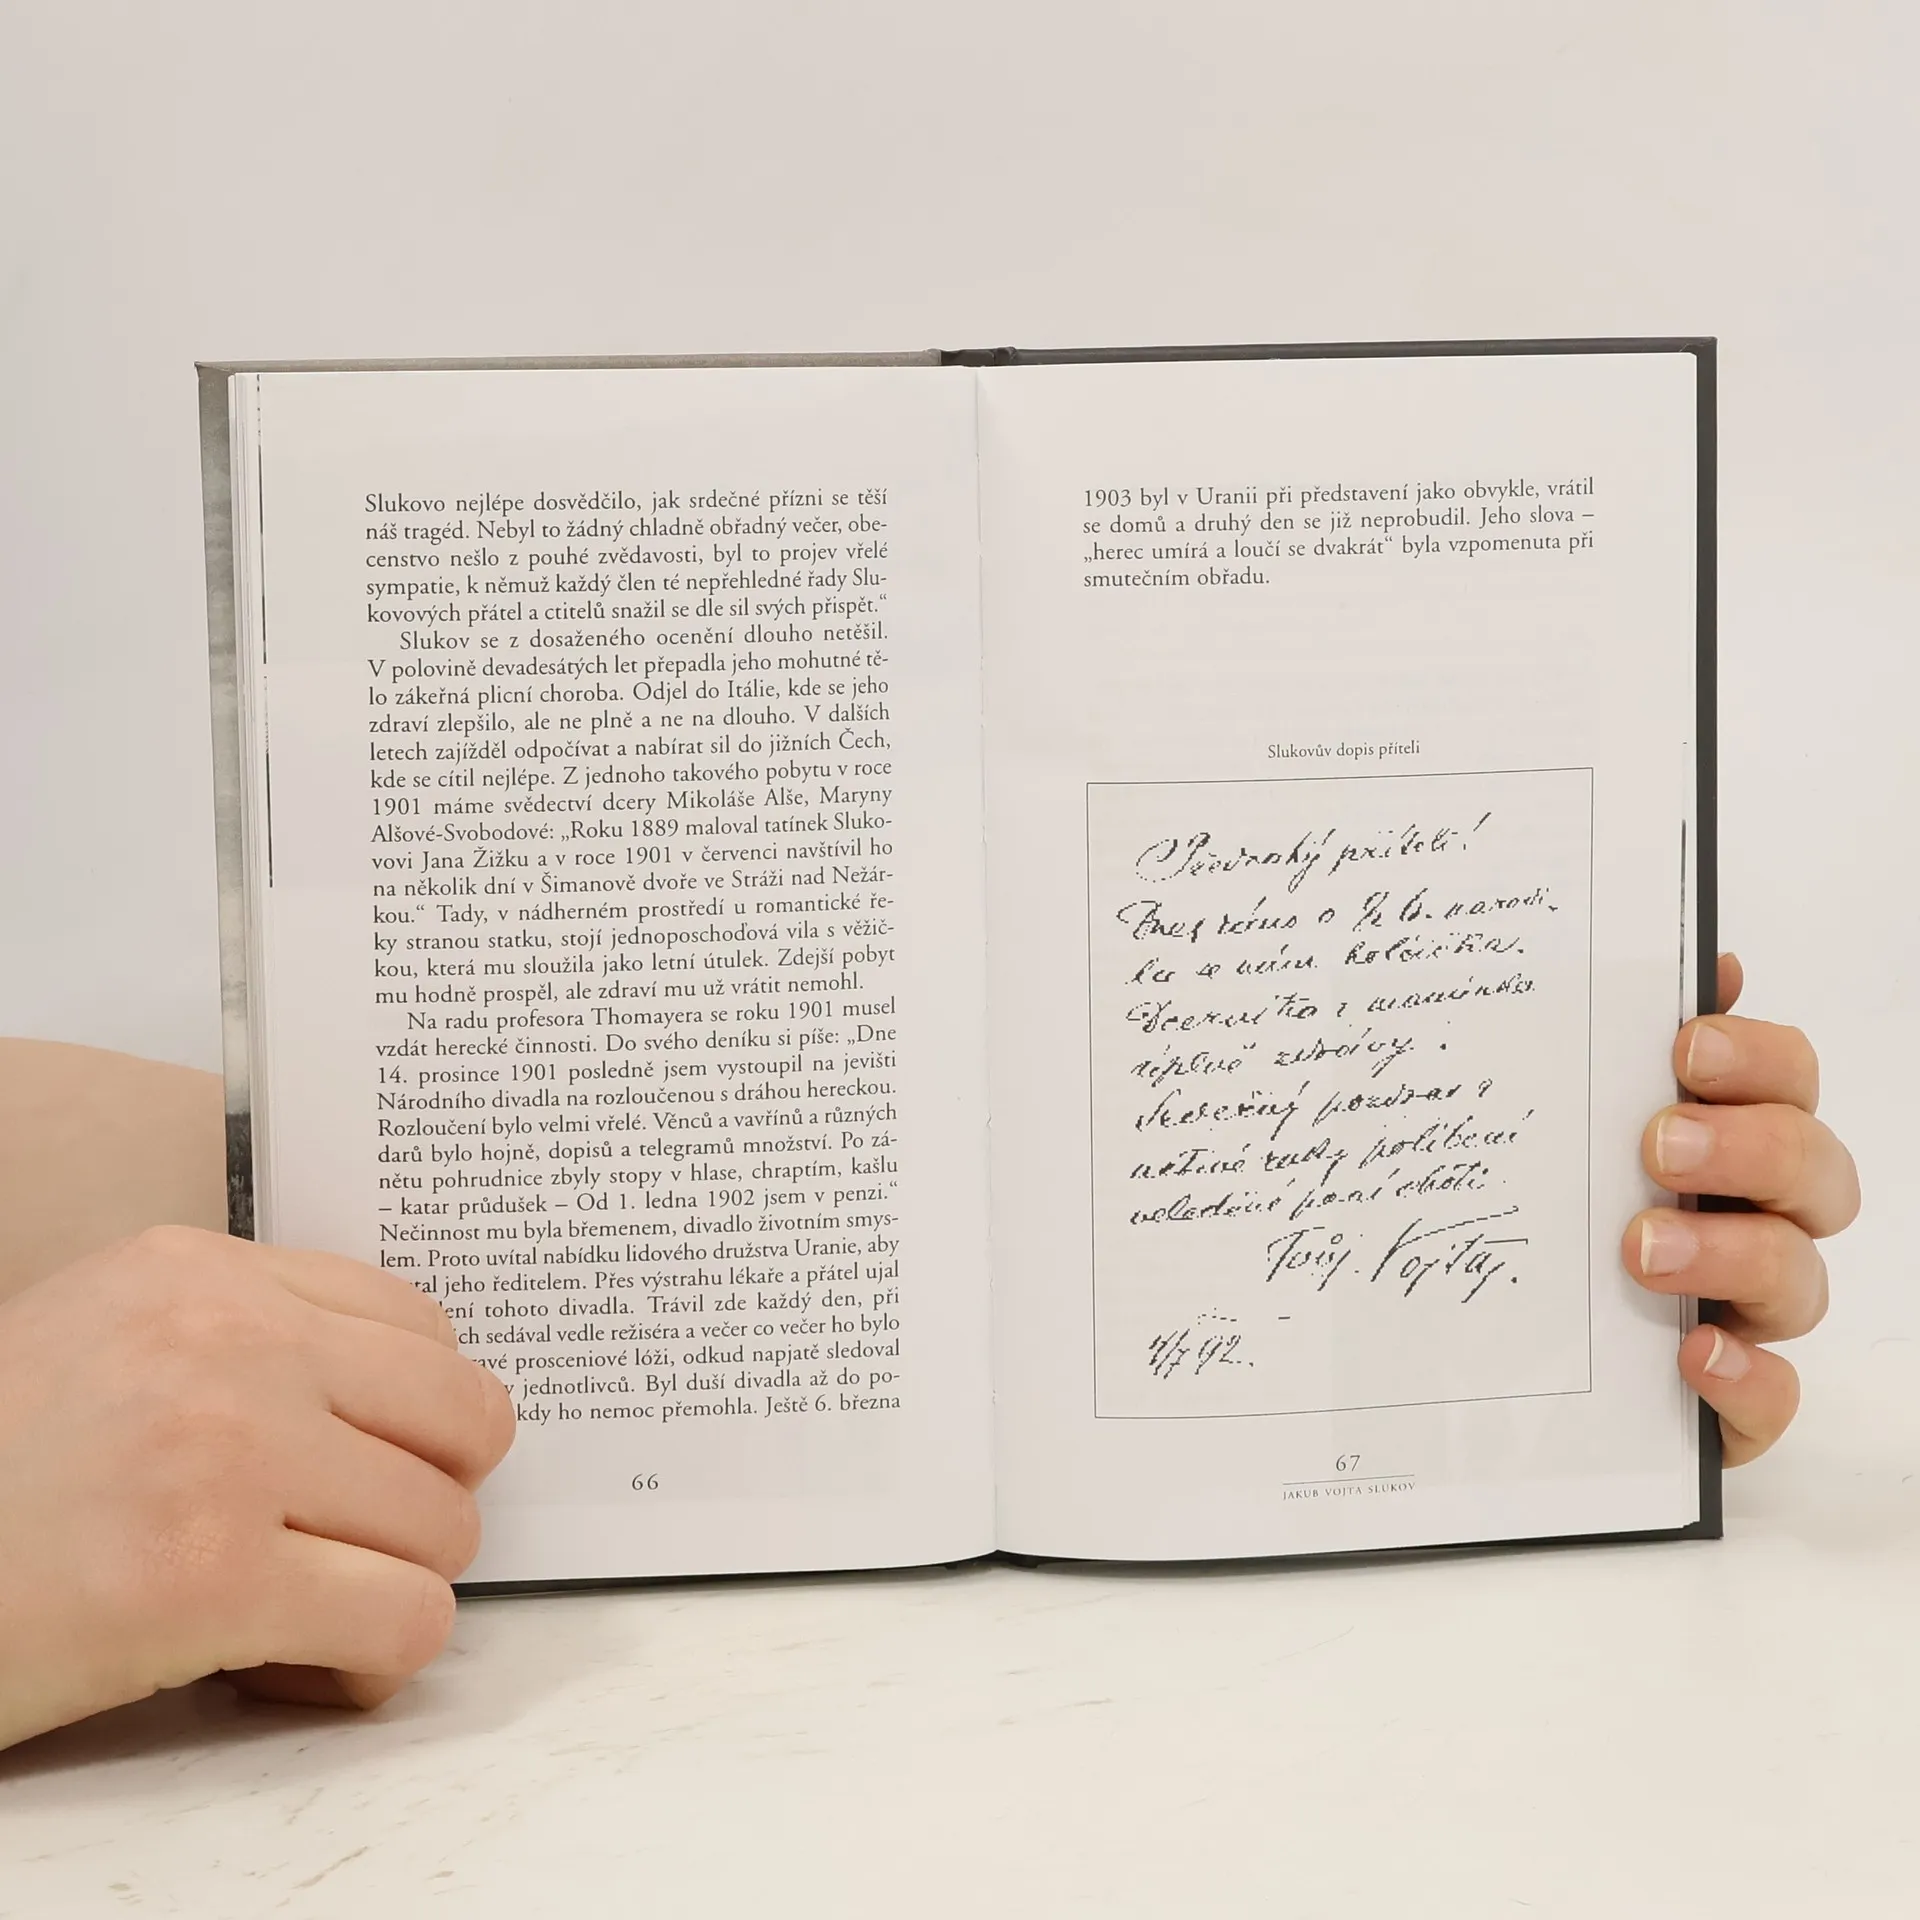 Slukovo nejlépe dosvědčilo, jak srdečné přízni se těší
náš tragéd. Nebyl to žádný chladně obřadný večer, obe-
censtvo nešlo z pouhé zvědavosti, byl to projev vřelé
sympatie, k němuž každý člen té nepřehledné řady Slu-
kovových přátel a ctitelů snažil se dle sil svých přispět.“
Slukov se z dosaženého ocenění dlouho netěšil.
V polovině devadesátých let přepadla jeho mohutné tě-
lo zákeřná plicní choroba. Odjel do Itálie, kde se jeho
zdraví zlepšilo, ale ne plně a ne na dlouho. V dalších
letech zajížděl odpočívat a nabírat sil do jižních Čech,
kde se cítil nejlépe. Z jednoho takového pobytu v roce
1901 máme svědectví dcery Mikoláše Alše, Maryny
Alšové-Svobodové: „Roku 1889 maloval tatínek Sluko-
vovi Jana Žižku a v roce 1901 v červenci navštívil ho
na několik dní v Šimanově dvoře ve Stráži nad Nežár-
kou.“ Tady, v nádherném prostředí u romantické ře-
ky stranou statku, stojí jednoposchoďová vila s věžič-
kou, která mu sloužila jako letní útulek. Zdejší pobyt
mu hodně prospěl, ale zdraví mu už vrátit nemohl.
Na radu profesora Thomayera se roku 1901 musel
vzdát herecké činnosti. Do svého deníku si píše: „Dne
14. prosince 1901 posledně jsem vystoupil na jevišti
Národního divadla na rozloučenou s dráhou hereckou.
Rozloučení bylo velmi vřelé. Věnců a vavřínů a různých
darů bylo hojně, dopisů a telegramů množství. Po zá-
nětu pohrudnice zbyly stopy v hlase, chraptím, kašlu
– katar průdušek – Od 1. ledna 1902 jsem v penzi.“
Nečinnost mu byla břemenem, divadlo životním smys-
lem. Proto uvítal nabídku lidového družstva Uranie, aby
jeho ředitelem. Přes výstrahu lékaře a přátel ujal
tohoto divadla. Trávil zde každý den, při
sedával vedle režiséra a večer co večer ho bylo
prosceniové lóži, odkud napjatě sledoval
jednotlivců. Byl duší divadla až do po-
kdy ho nemoc přemohla. Ještě 6. března
66
1903 byl v Uranii při představení jako obvykle, vrátil
se domů a druhý den se již neprobudil. Jeho slova –
„herec umírá a loučí se dvakrát“ byla vzpomenuta při
smutečním obřadu.
Slukovův dopis příteli
Převzácný příteli!
Dnes ráno o 1/2 6. narodi-
la se nám holčička.
Dceruška i maminka
úplně zdrávy.
Srdečný pozdrav i
uctivé ruky políbení
velectěné paní choti.
Tvůj Vojta.
4/7 92.
67
JAKUB VOJTA SLUKOV